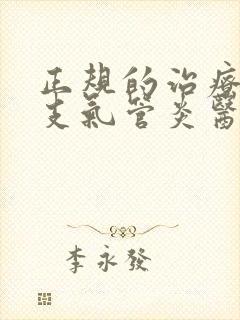 正規的治療
支氣管炎醫
李永發